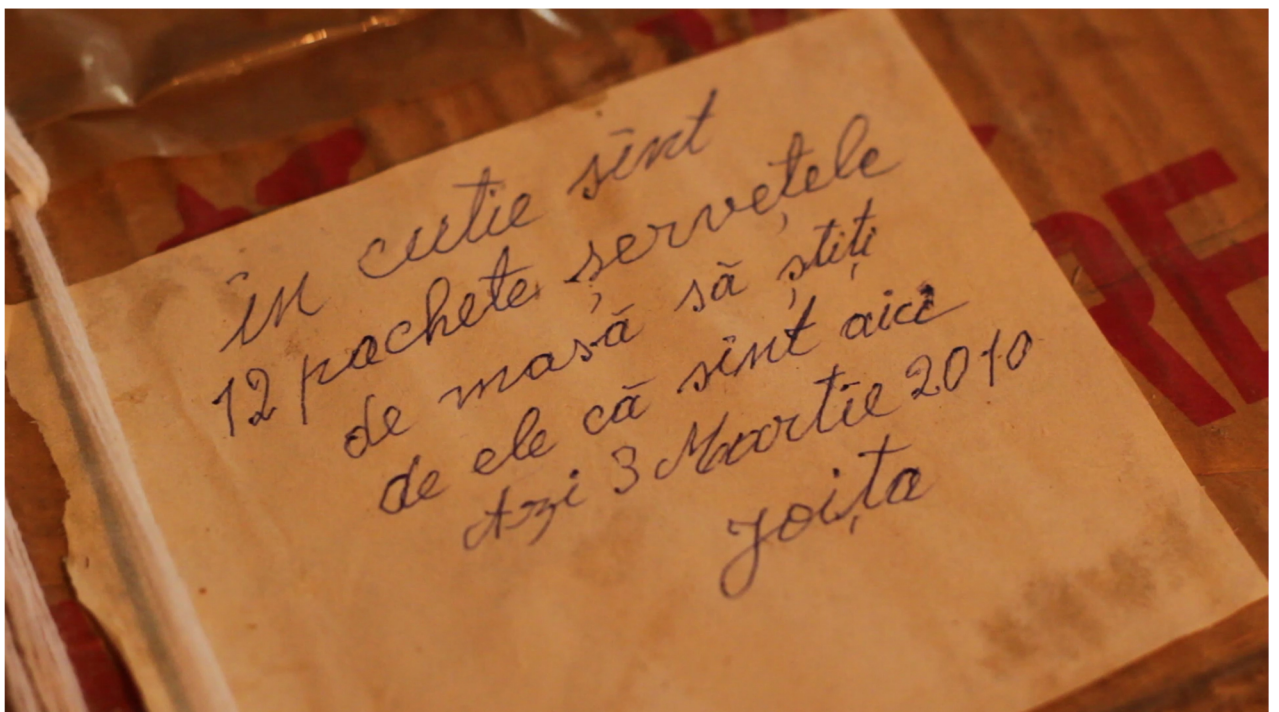 în cutie sînt
12 pachete șervețele
de masă să știți
de ele că sînt aici
Azi 3 Martie 2010
Joița
RE